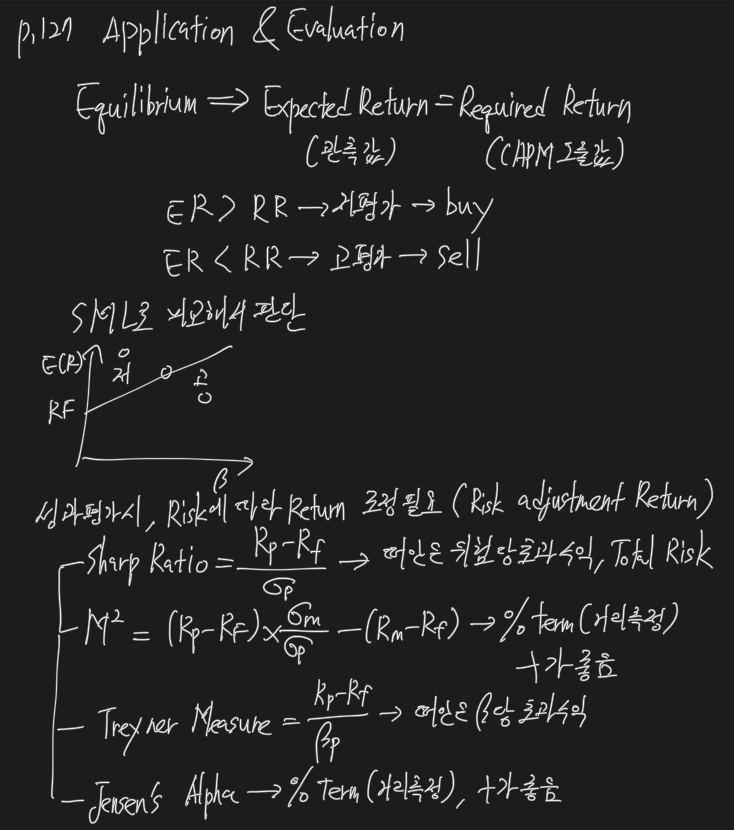 p.127 Application & Evaluation
Equilibrium ⟹ Expected Return = Required Return
(관측값) (CAPM 도출값)
ER > RR → 저평가 → buy
ER < RR → 고평가 → sell
SML로 비교해서 판단
E(R)
저 고
RF
β
성과평가시, Risk에 따라 Return 조정필요 (Risk adjustment Return)
Sharp Ratio = (Rp-Rf)/σp → 떠안은 위험당초과수익, Total Risk
M² = (Rp-RF) × σm/σp - (Rm-Rf) → % term (거리측정)
+가 좋음
Treyner Measure = (Rp-Rf)/βp → 떠안은 β당 초과수익
Jensen's Alpha → % Term (거리측정), +가 좋음